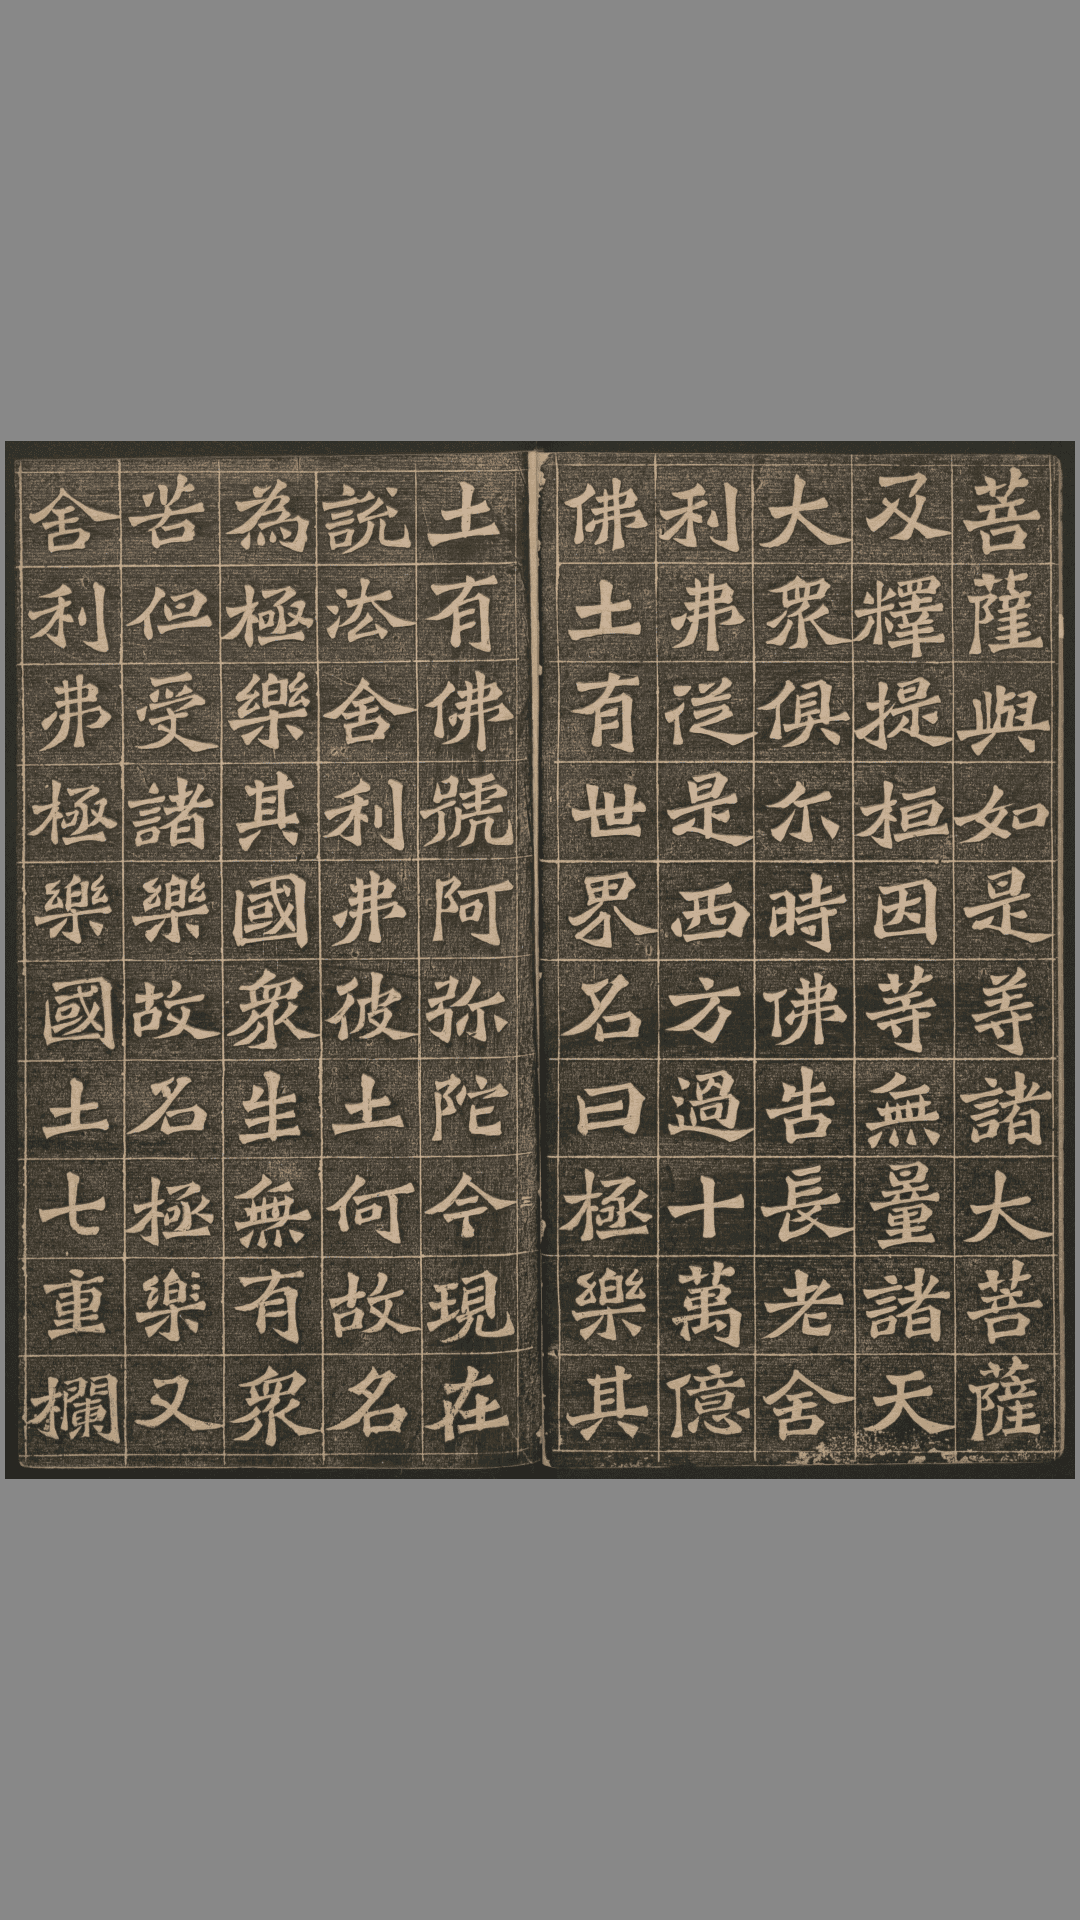 菩薩與如是等諸大菩薩
及釋提桓因等無量諸天
大衆俱尒時佛告長老舍
利弗從是西方過十萬億
佛土有世界名曰極樂其
土有佛號阿弥陀今現在
說法舍利弗彼土何故名
為極樂其國衆生無有衆
苦但受諸樂故名極樂又
舍利弗極樂國土七重欄